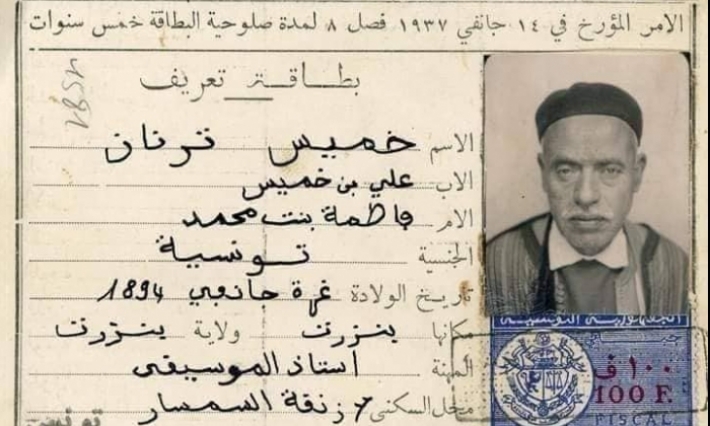 الامر المؤرخ في ١٤ جانفي ١٩٣٧ فصل ٨ لمدة صلوحية البطاقة خمس سنوات
بطاقة تعريف
الاسم خميس ترنان
الاب علي بن خميس
الام فاطمة بنت محمد
الجنسية تونسية
تاريخ الولادة غرة جانفي 1894
مكانها بنزرت ولاية بنزرت
المهنة استاذ الموسيقى
محل السكنى 7 زنقة السمسار
تونس
الجمهورية التونسية
١٠٠ ف
100 F.
FISCAL